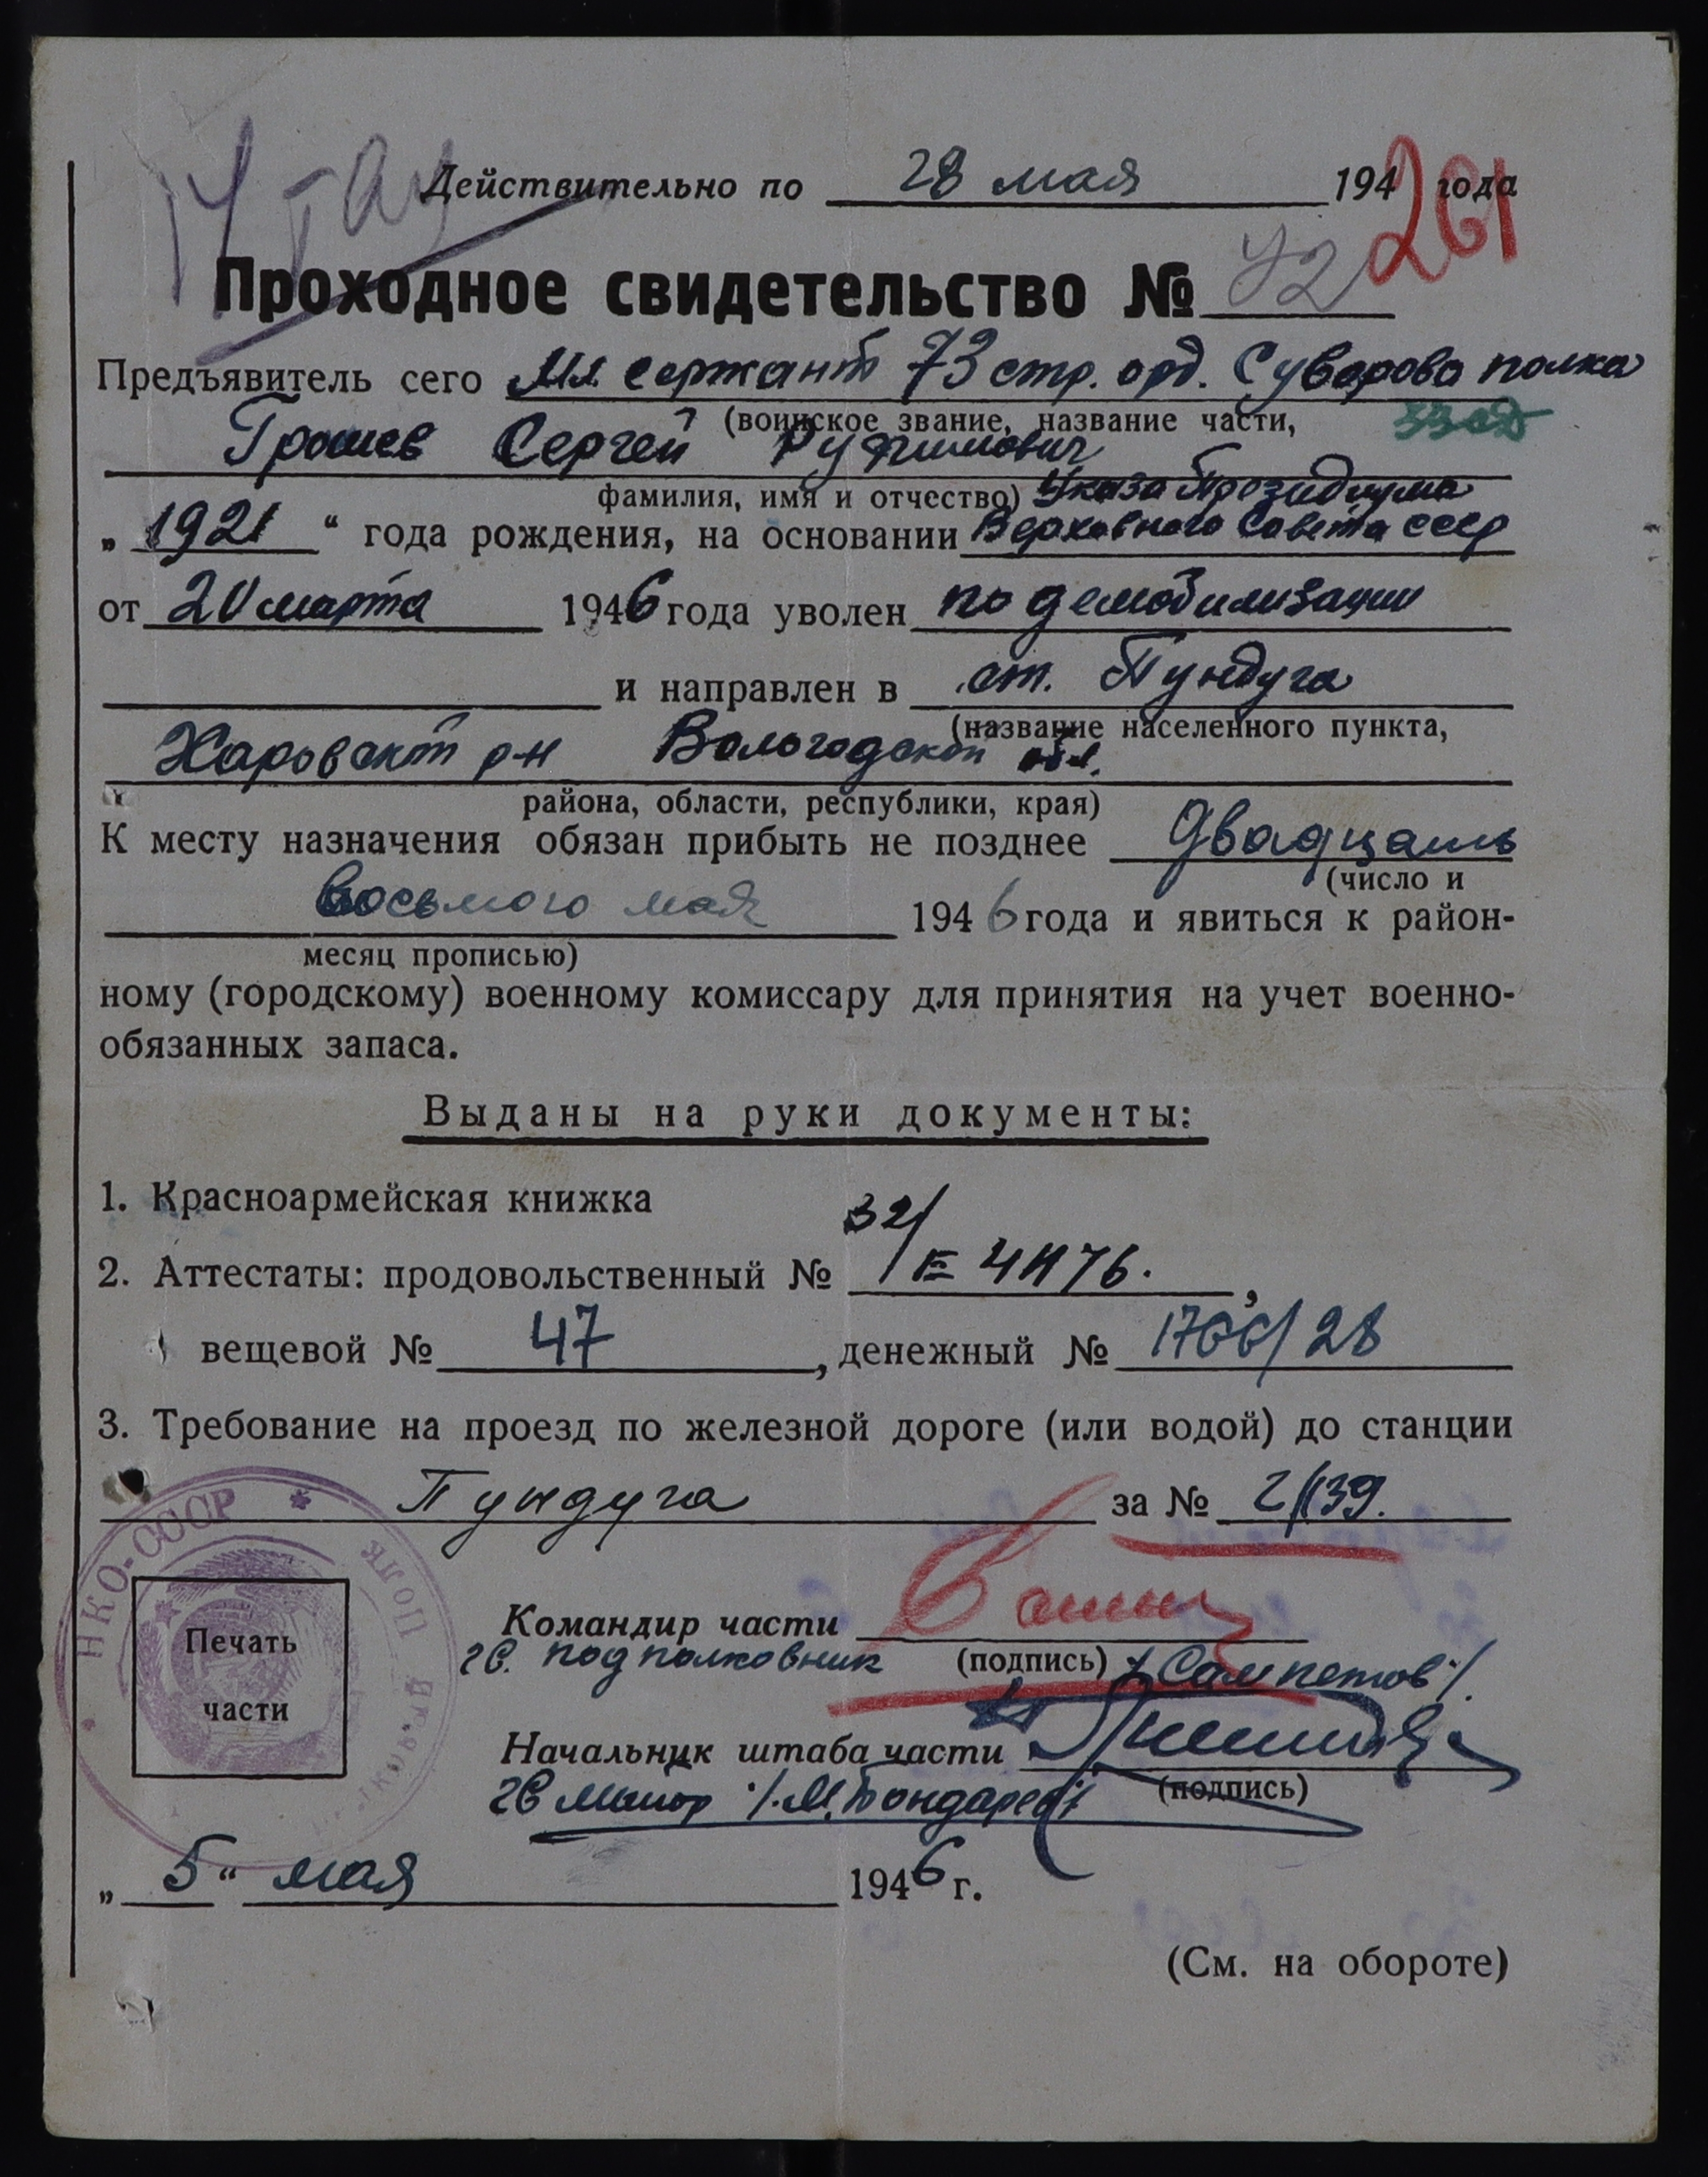 Действительно по 28 мая 194 года
261
Проходное свидетельство № 42
Предъявитель сего Мл. сержант 73 стр. орд. Суворова полка
(воинское звание, название части,
33 сд
Грошев Сергей
фамилия, имя и отчество) Указа Президиума
„1921“ года рождения, на основании Верховного Совета СССР
от 20 марта 1946 года уволен по демобилизации
и направлен в ст. Пундуга
(название населенного пункта,
Харовский р-н Вологодской обл.
района, области, республики, края)
К месту назначения обязан прибыть не позднее двадцать
(число и
восьмого мая 1946 года и явиться к район-
месяц прописью)
ному (городскому) военному комиссару для принятия на учет военно-
обязанных запаса.
Выданы на руки документы:
1. Красноармейская книжка
2. Аттестаты: продовольственный №
вещевой № 47, денежный № 1766/28
3. Требование на проезд по железной дороге (или водой) до станции
Пундуга за №
НКО-СССР
Печать
части
Командир части
гв. подполковник (подпись)
Начальник штаба части
гв майор /М. Бондарев/ (подпись)
„5“ мая 1946 г.
(См. на обороте)